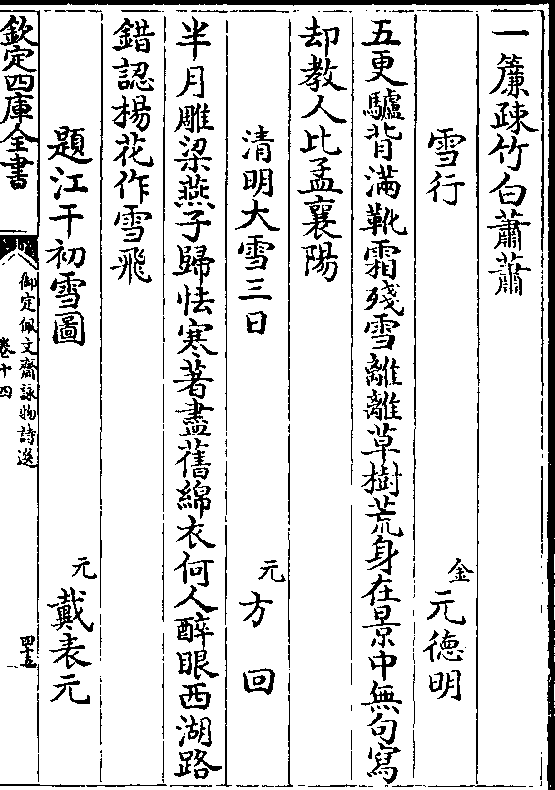 一簾疎竹白蕭蕭
雪行　金　元德明
五更驢背滿靴霜殘雪離離草樹荒身在景中無句寫
却教人比孟襄陽
清明大雪三日　元　方回
半月雕梁燕子歸怯寒著盡舊綿衣何人醉眼西湖路
錯認楊花作雪飛
題江干初雪圖　元　戴表元
欽定四庫全書　御定佩文齋詠物詩選　卷十四　四十五